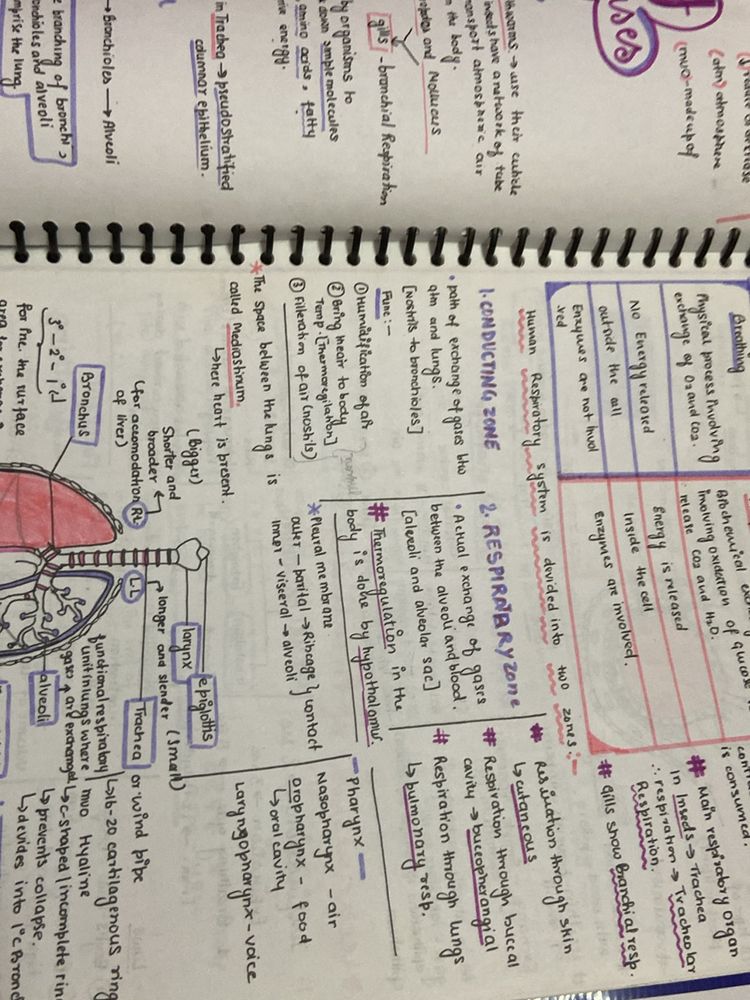 ses
(atm) atmosphere
(muo)-madeup of
thworms → use their cuticle
insects have a network of tube
transport atmospheric air
n the body.
and Molluscs
gills - bronchial Respiration
by organisms to
down simple molecules
amino acids, fatty
energy.
in Trachea → pseudostratified
columnar epithelium.
→ Bronchioles → Alveoli
branching of bronchi,
onchioles and alveoli
mprise the lung
Breathing
Physical process involving
exchange of O2 and CO2.
No Energy released
outside the cell
Enzymes are not invol
ved
involving oxidation of glucos
release CO2 and H2O.
Energy is released
Inside the cell
Enzymes are involved.
is consumed.
# Main respiratory organ
in Insects → Trachea
∴ respiration → Tracheolar
Respiration.
# gills show Branchial resp.
Human Respiratory system is devided into two zones:-
1. CONDUCTING ZONE
• path of exchange of gases btw
atm and lungs.
[Nostrils to bronchioles]
Func:-
① Humidification of air
② Bring inair to body
Temp. [Thermoregilation]
③ Filteration of air (noshils)
* The space between the lungs is
called Mediastinum.
↳ here heart is present.
2. RESPIRATARY ZONE
• Actual exchange of gases
between the alveoli and blood.
[aleoli and alveolar sac]
# Thermoregulation in the
body is done by hypothalamus.
* Pleural membrane
outer - parital → Ribcage } contact
inner - visceral → alveoli
# through skin
↳ cutaneous
# Respiration through buccal
cavity → buccopherangial
# Respiration through lungs
↳ pulmonary resp.
- Pharynx -
Nasopharynx - air
oropharynx - food
↳ oral cavity
Laryngopharynx - voice
(Bigger)
Shorter and
broader
(for accomodation
of liver)
RL
Bronchus
3° - 2° - 1°
for inc. the surface
LL
longer and slender (small)
epiglottis
larynx
Trachea or wind pipe
↳ 16-20 cartilagenous ring
muo Hyaline
↳ c-shaped (incomplete rin
↳ prevents collapse.
↳ devides into 1°C Bron
functional respiratory
unit in lungs where
gases are exchanged
alveoli